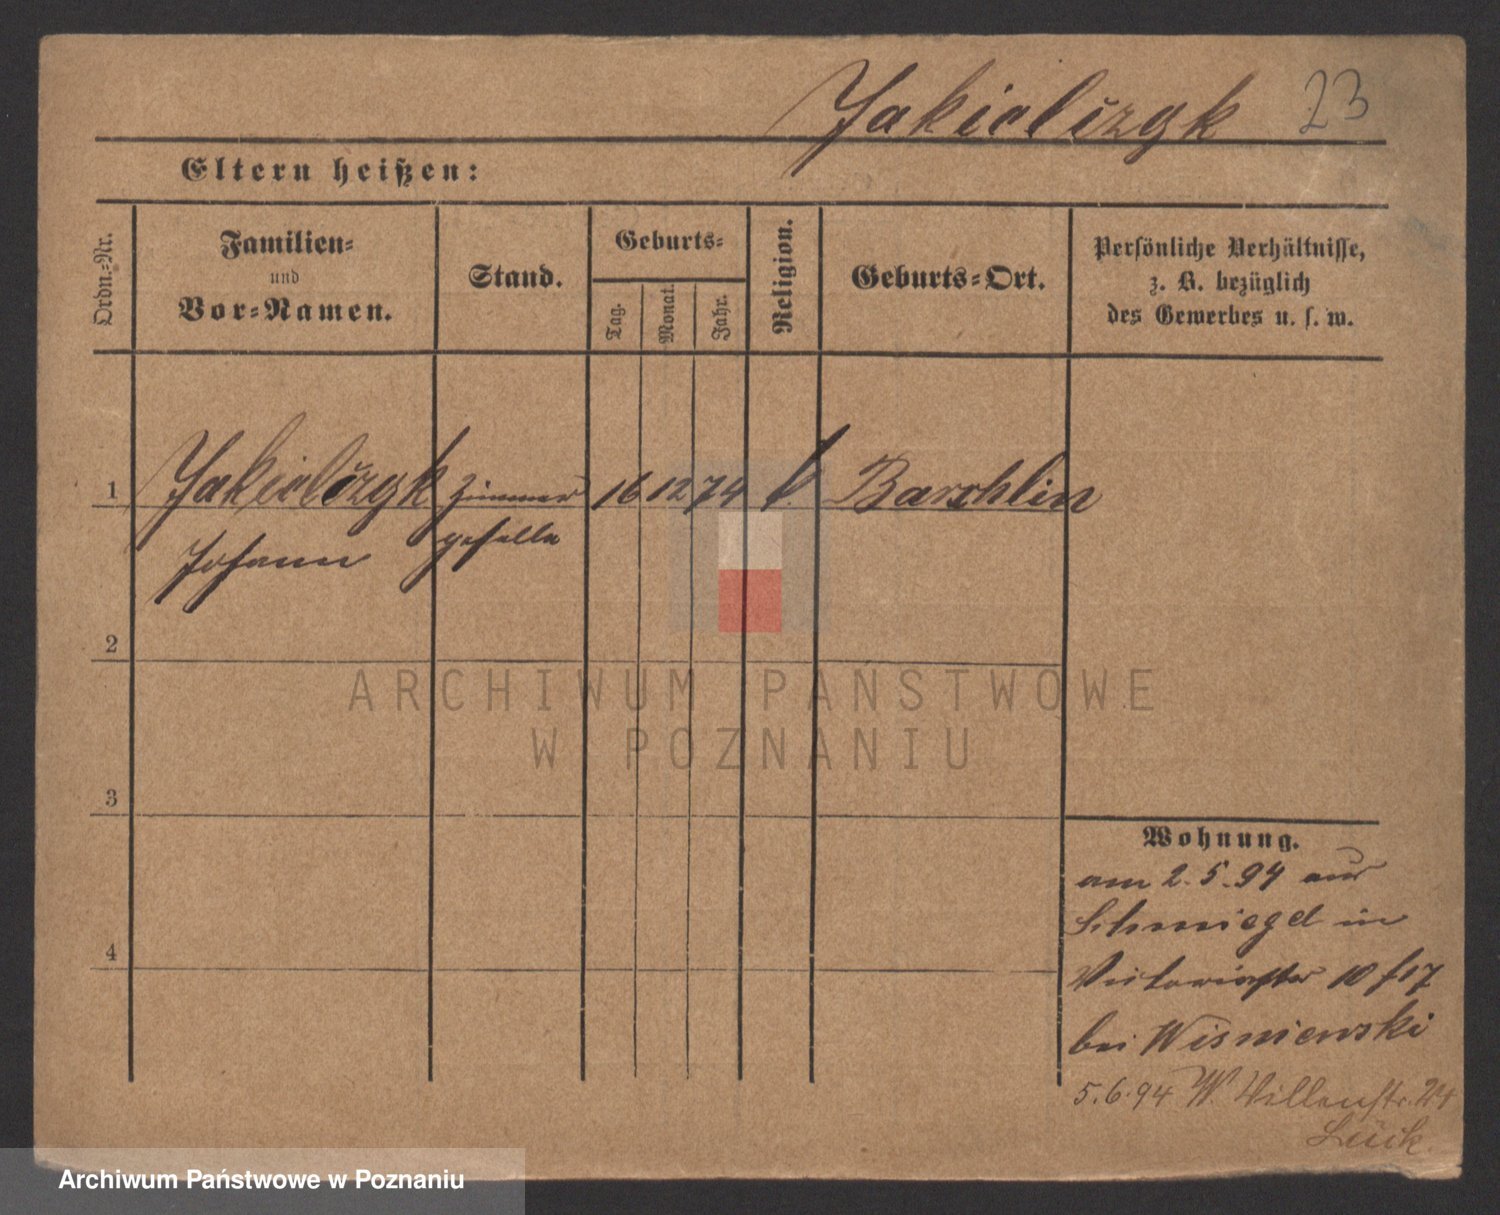 Jakielczyk 23
Eltern heißen:
Ordn.=Nr.
Familien=
und
Vor=Namen.
Stand.
Geburts=
Tag.
Monat.
Jahr.
Religion.
Geburts=Ort.
Persönliche Verhältnisse,
z. B. bezüglich
des Gewerbes u. s. w.
1 Jakielczyk Zimmer 16 12 74 k. Barchlin
Johann geselle
2
3
4
ARCHIWUM PAŃSTWOWE
W POZNANIU
Wohnung.
am 2.5.94 aus
Schmiegel in
Victoriastr 10
bei Wisniewski
5.6.94 W.
Lück.
Archiwum Państwowe w Poznaniu